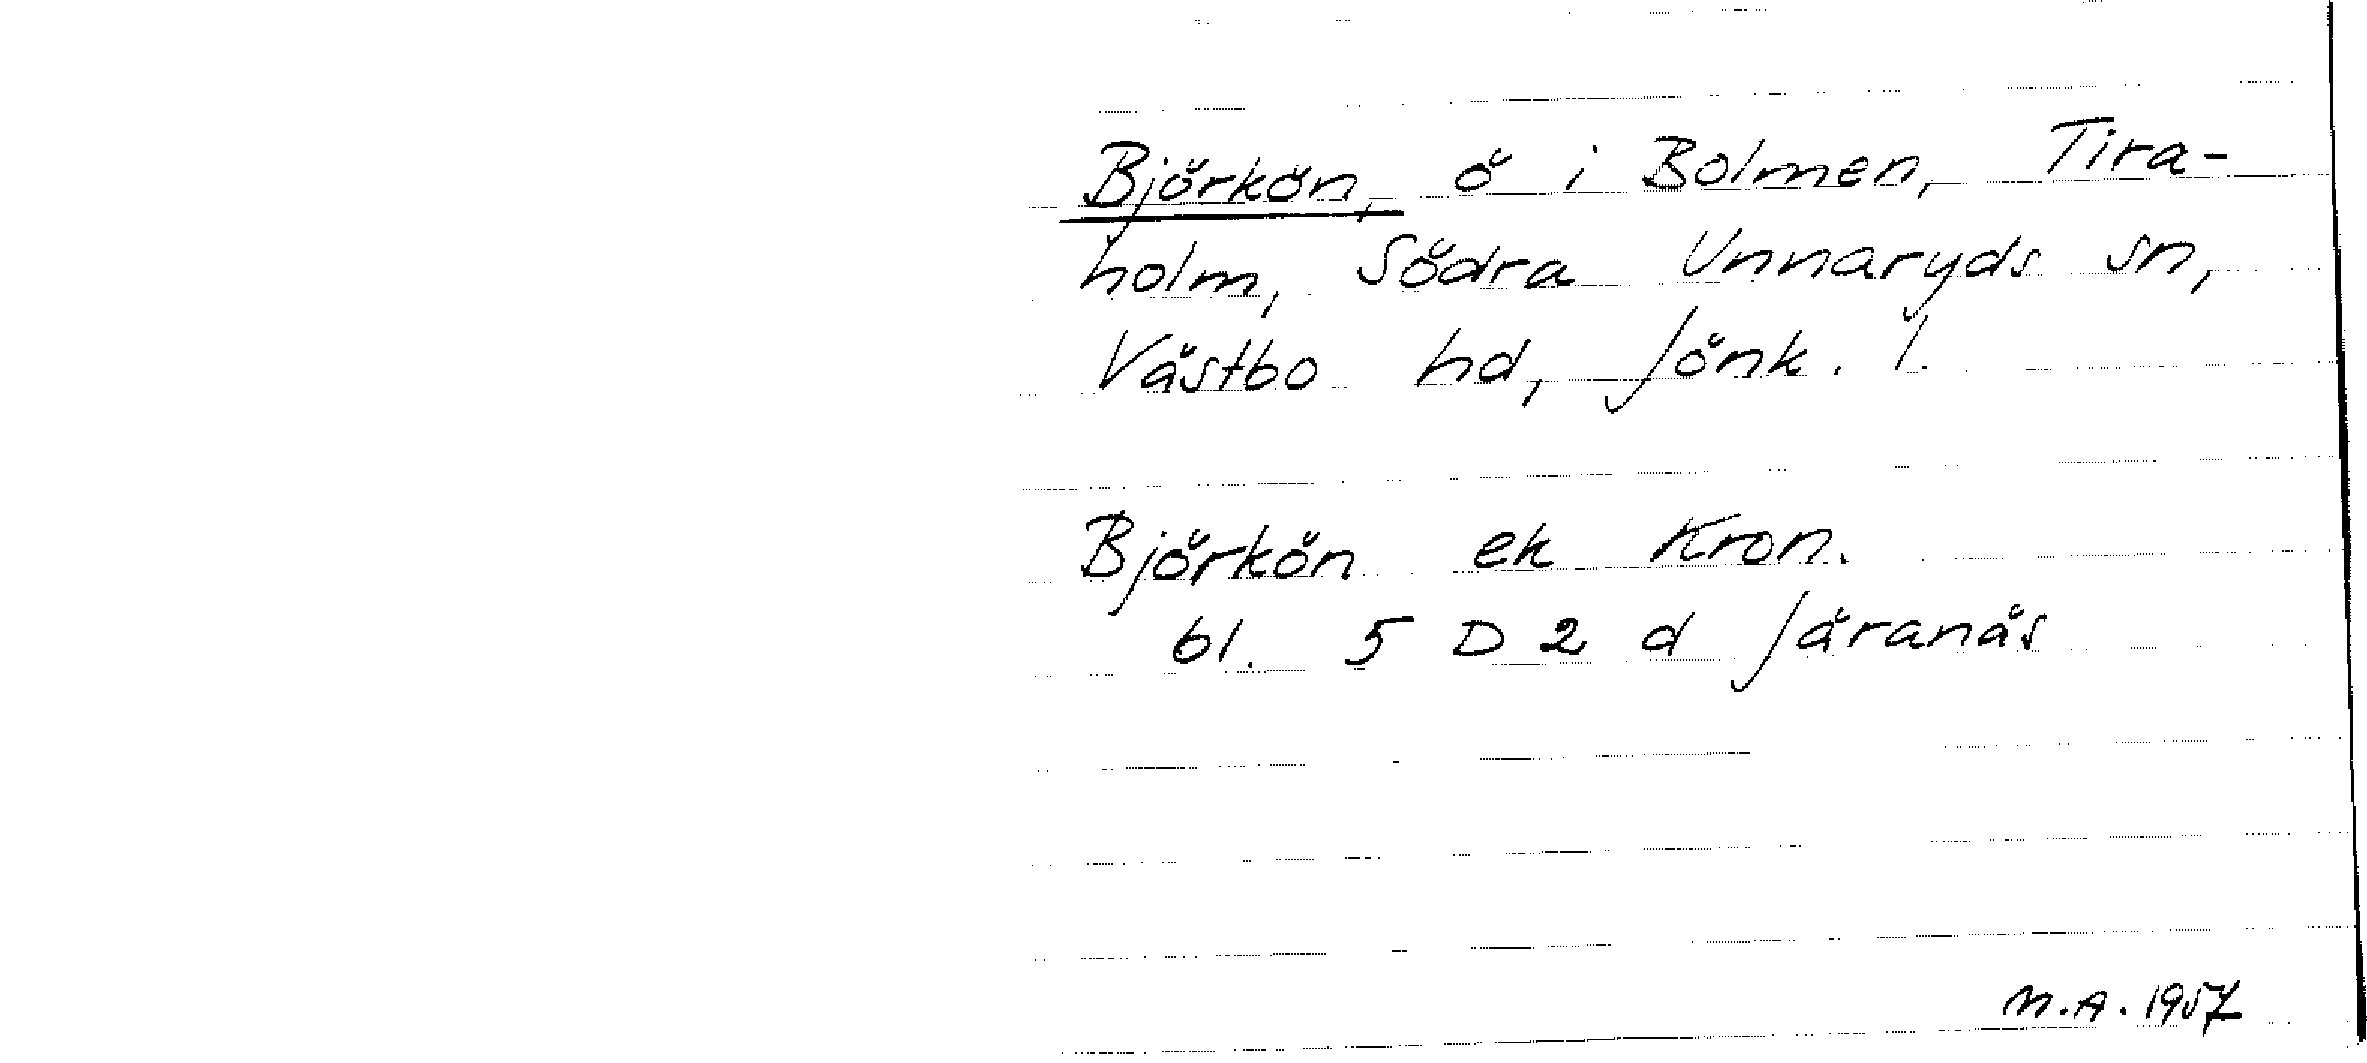 Björkön, ö i Bolmen, Tira-
holm, Södra Unnaryds sn,
Västbo hd, Jönk. l.
Björkön ek Kron.
bl. 5 D 2 d Järanäs
N.A. 1957